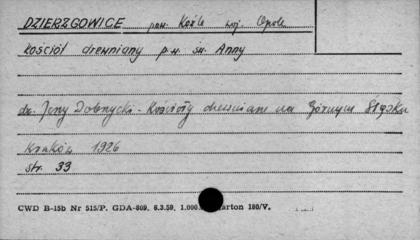 DZIERZGOWICE pow. Koźle woj. Opole
kościół drewniany p.w. św. Anny
dr. Jerzy Dobrzycki - Kościoły drewniane na Górnym Śląsku
Kraków 1926
str. 33
CWD B-15b Nr 515/P. GDA-809. 6.3.59. 1.000 karton 180/V.